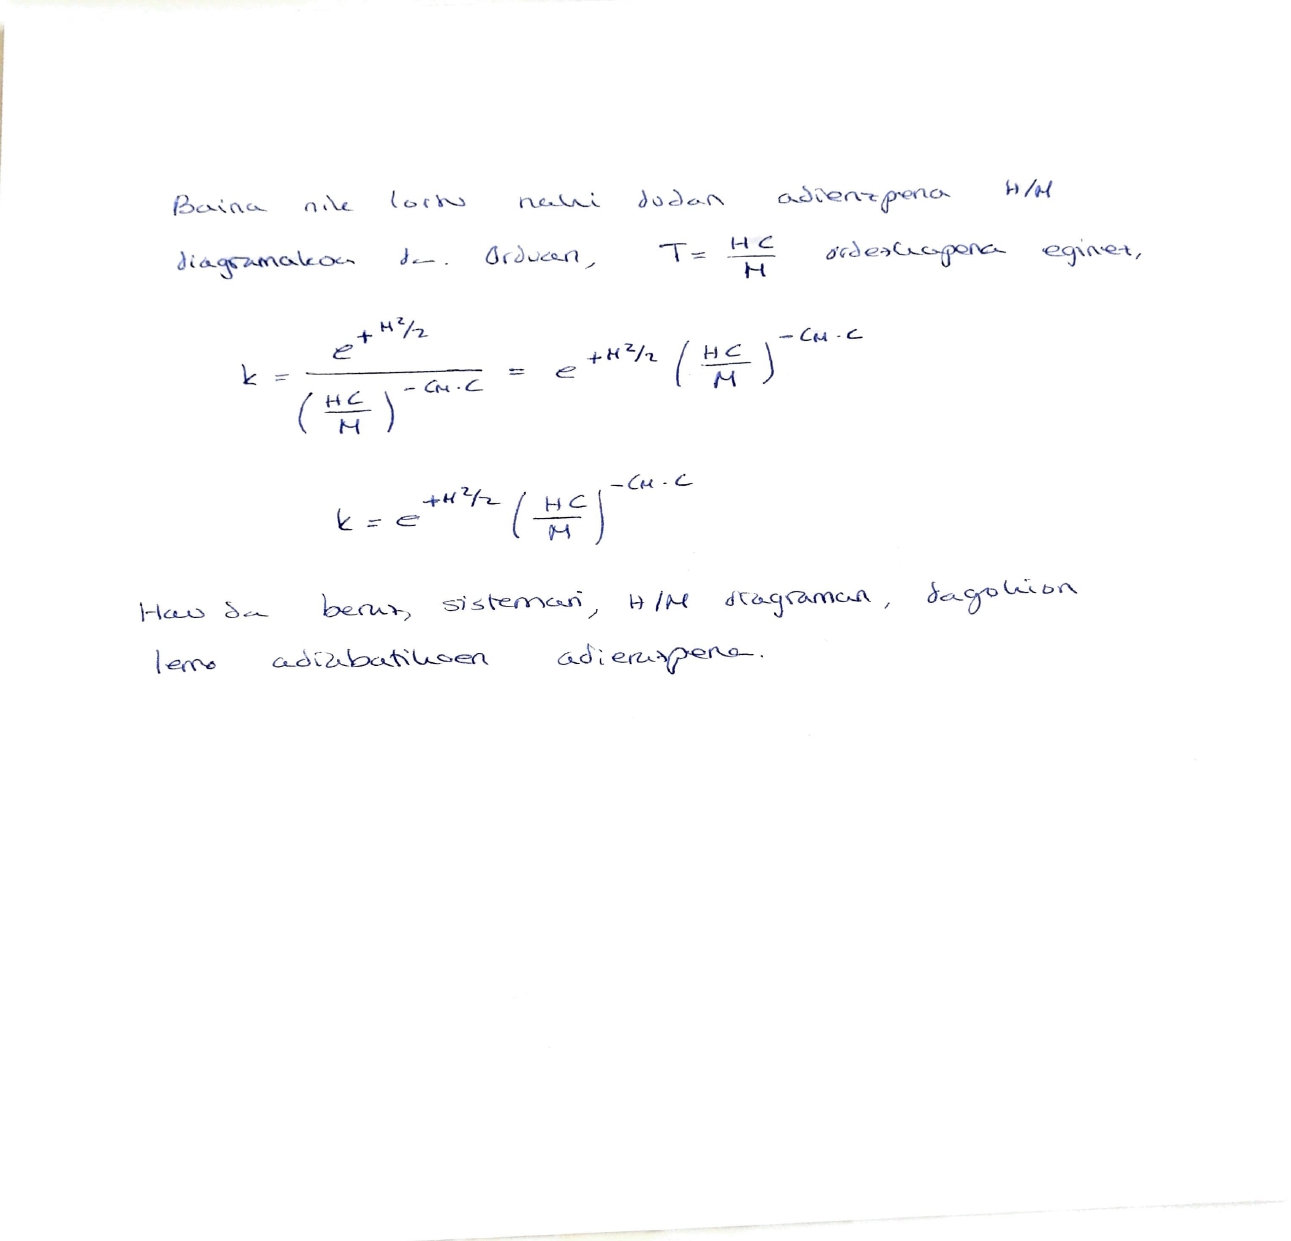 Baina nik lortu nahi dudan adierazpena H/M
diagramakoa da. Orduan, T = HC/M ordezkapena eginez,
k = e^{+M²/2} / (HC/M)^{-C_M·C} = e^{+M²/2} (HC/M)^{-C_M·C}
k = e^{+M²/2} (HC/M)^{-C_M·C}
Hau da beraz, sistemari, H/M diagraman, dagokion
lerro adiabatikoen adierazpena.